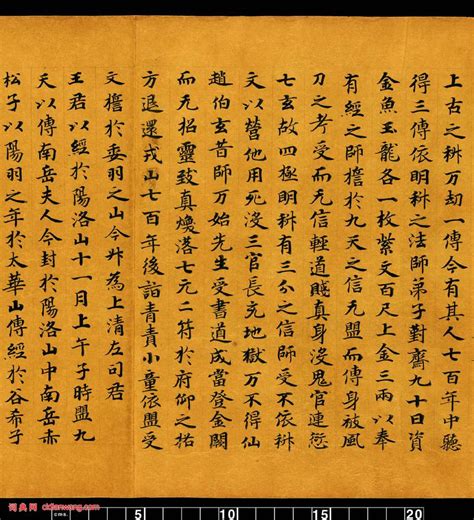 上古之科万劫一傳今有其人七百年中聽
得三傳依明科之法師弟子對齋九十日資
金魚玉龍各一枚紫文百尺上金三兩以奉
有經之師擔於九天之信无盟而傳身被風
刀之考受而无信輕道賤真身沒鬼官連愆
七玄故四極明科有三分之信師受不依科
文以營他用死沒三官長充地獄万不得仙
趙伯玄昔師万始先生受書道成當登金闕
而无招靈致真煥落七元二符於府仰之祐
方退還戎山七百年後詣青責小童依盟受
文擔於委羽之山今升為上清左司君
王君以經於陽洛山十一月上午子時盟九
天以傳南岳夫人今封於陽洛山中南岳赤
松子以陽羽之年於太華山傳經於谷希子
词典网 cidianwang.com
cms. 5 10 15 20